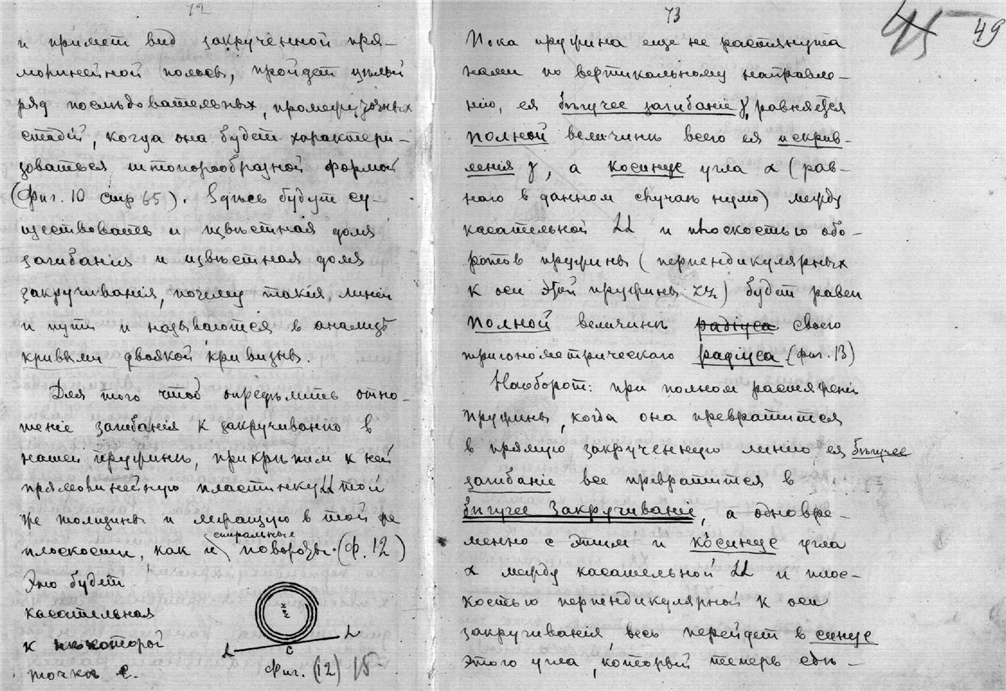 72
и приметъ видъ закрученной пря-
молинейной полосы, пройдетъ цѣлый
рядъ послѣдовательныхъ, промежуточныхъ
стадій, когда она будетъ характери-
зоваться штопорообразной формой
(Фиг. 10 стр 65). Здѣсь будутъ су
ществовать и извѣстная доля
загибанія и извѣстная доля
закручиванія, почему такія линіи
и пути и называются в анализѣ
кривыми двоякой кривизны.
Для того чтоб опредѣлить отно-
шеніе загибанія к закручиванію в
нашей пружинѣ, прикрѣпим к ней
прямолинейную пластинку LL той
же толщины и лежащую в той же
плоскости, как и спиральные повороты. (ф. 12)
Это будетъ
касательная
к нѣкоторой
точкѣ с.
L L
c
Фиг. (12) 15
73
45 49
Пока пружина еще не растянута
нами по вертикальному направле-
нію, ея бѣгучее загибаніе γ, равняется
полной величинѣ всего ея искрив-
ленія γ, а косинус угла α (рав-
наго в данном случаѣ нулю) между
касательной LL и плоскостью обо-
ротов пружины (перпендикулярных
к оси этой пружины ZZ) будет равен
полной величинѣ радіуса своего
тригонометрическаго радіуса (фиг. 13)
Наоборот: при полном растяженіи
пружины, когда она превратится
в прямую закрученную линію ея бѣгучее
загибаніе все превратится в
бѣгучее закручиваніе, а одновре-
менно с этим и косинус угла
α между касательной LL и плос-
костью перпендикулярной к оси
закручиванія весь перейдет в синус
этого угла, который теперь сдѣ-